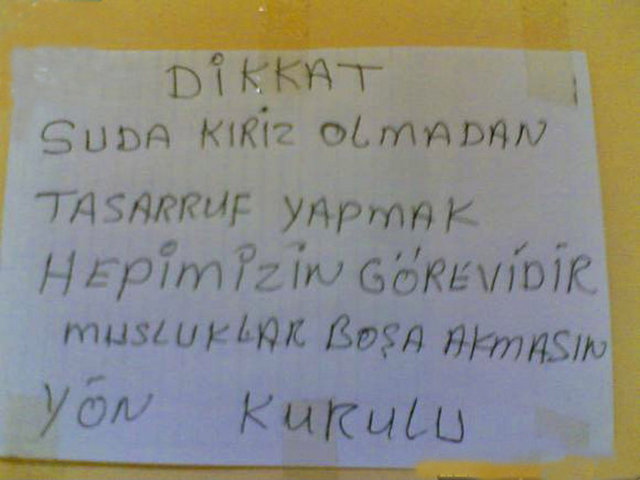 DİKKAT
SUDA KIRİZ OLMADAN
TASARRUF YAPMAK
HEPİMİZİN GÖREVİDİR
MUSLUKLAR BOŞA AKMASIN
YÖN KURULU